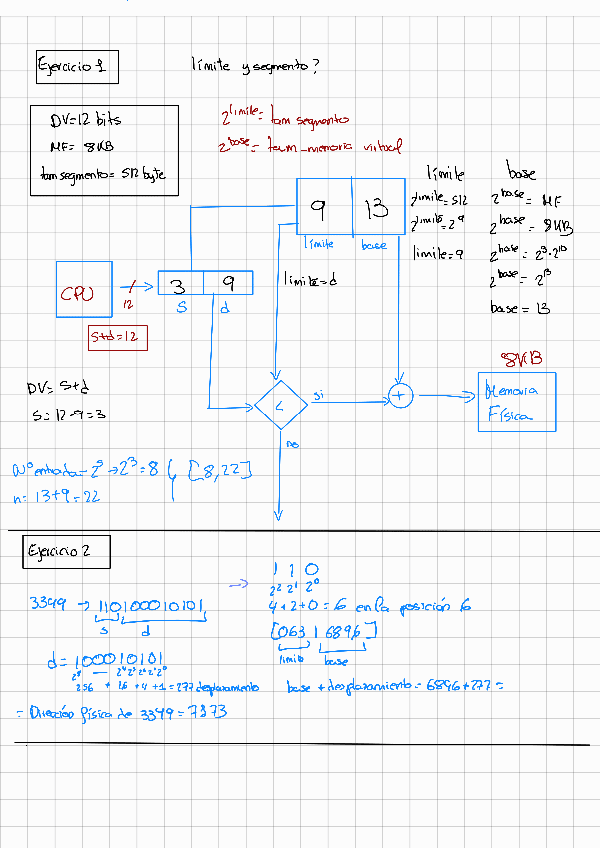 Ejercicio 1
límite y segmento?
DV=12 bits
MF= 8KB
tam segmento= 512 byte
2^límite= tam segmento
2^base= tam_memoria virtual
límite base
9 13
límite base
2^límite=512
2^límite=2^9
límite=9
2^base= MF
2^base= 8KB
2^base= 2^3·2^10
2^base= 2^13
base= 13
CPU
12
3 9
S d
límite=d
S+d=12
8KB
DV= S+d
S= 12-9=3
<
si
+
Memoria
Física
no
Nº entrada= 2^s → 2^3=8 [8,22]
n= 13+9=22
Ejercicio 2
1 1 0
2^2 2^1 2^0
3349 → 110100010101
4+2+0=6 en la posición 6
s d
[063 | 6896]
límite base
d= 100010101
2^8 — 2^4 2^3 2^2 2^1 2^0
256 + 16 +4 +1=277 desplazamiento
base + desplazamiento= 6896+277=
= Dirección física de 3349= 7373